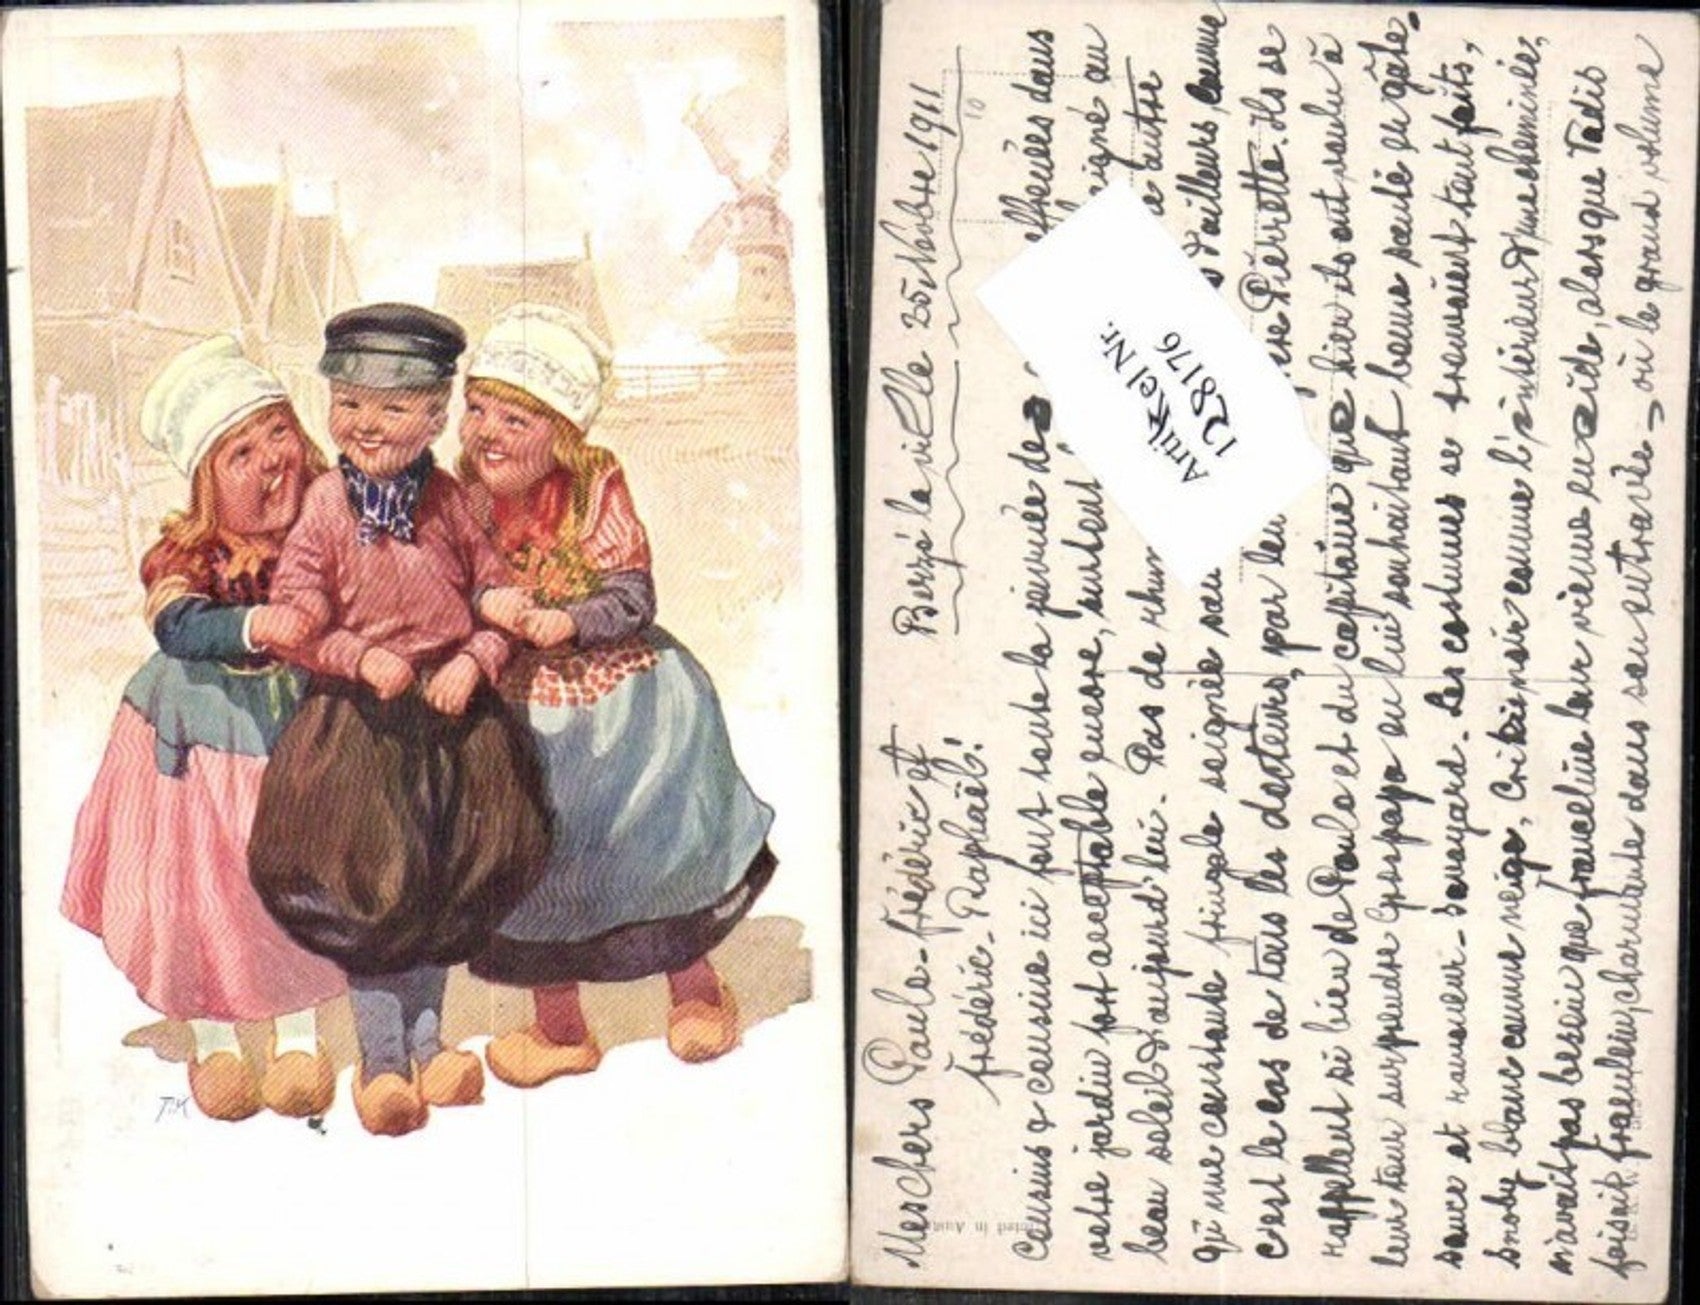 T.K
Berzé la ville 25 Novbre 1911
Mes chers Paule-Frédéric et
Frédéric-Raphaël!
Cousins & cousine ici font toute la journée des effrénées dans
votre jardin fort acceptable encore, surtout au
beau soleil d'aujourd'hui. Pas de autre
qu'une constante fringale soignée d'ailleurs comme
c'est le cas de tous les docteurs, par Pierrette. Ils se
rappellent si bien de Paule et du capitaine que hier ils ont voulu à
leur tour surprendre Grospapa en lui souhaitant bonne santé en gâte-
sauce et ramoneur-savoyard. Les costumes se trouvaient tout faits,
Snoby blanc comme neige, Cri-Cri noir comme l'intérieur d'une cheminée,
n'avait pas besoin que Franceline leur vienne en aide, alors que Jadis
faisait fraeulein charmante dans son entravée - où le grand volume
Printed in Austria
10
Artikel Nr.
128176